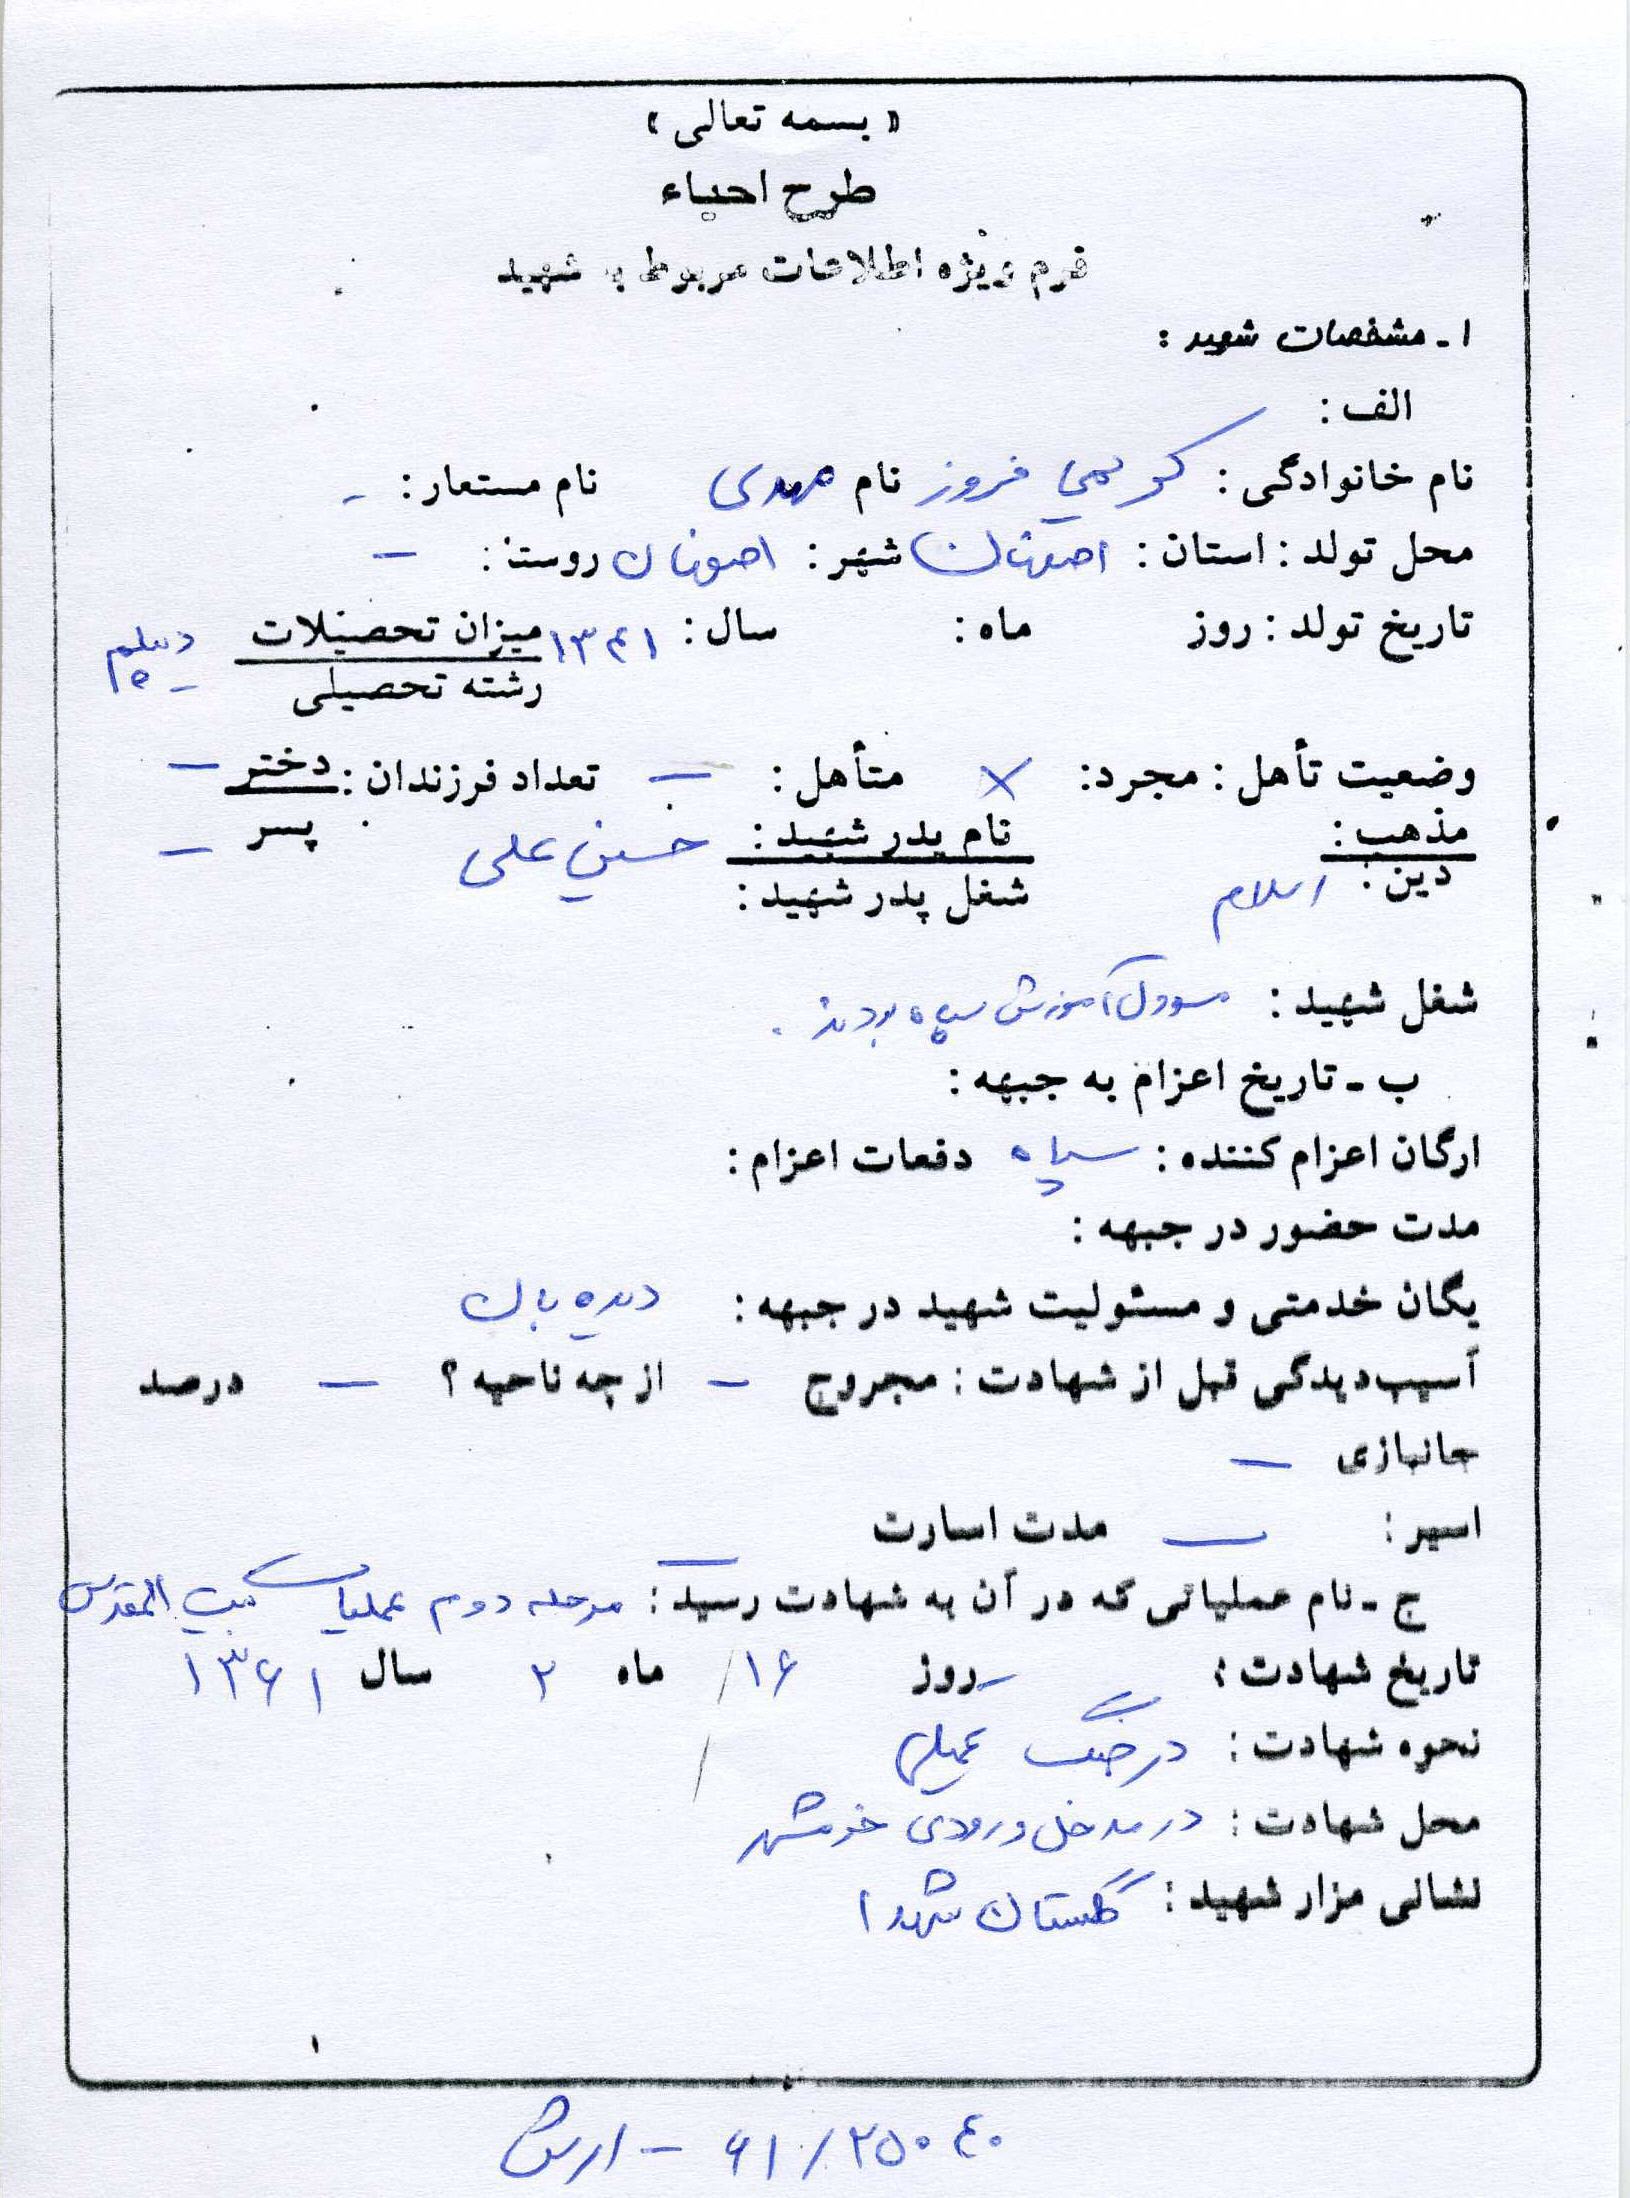 « بسمه تعالی »
طرح احیاء
فرم ویژه اطلاعات مربوط به شهید
۱ـ مشخصات شهید :
الف :
نام خانوادگی : کریمی فروز نام مهدی نام مستعار : -
محل تولد : استان : اصفهان شهر : اصفهان روستا : -
تاریخ تولد : روز ماه : سال : ۱۳۴۱ میزان تحصیلات دیپلم
رشته تحصیلی -
وضعیت تأهل : مجرد : × متأهل : - تعداد فرزندان : دختر -
مذهب : نام پدر شهید : حسینعلی پسر -
دین : اسلام شغل پدر شهید :
شغل شهید : مسوول آموزش سپاه بودند .
ب ـ تاریخ اعزام به جبهه :
ارگان اعزام کننده : سپاه دفعات اعزام :
مدت حضور در جبهه :
یگان خدمتی و مسئولیت شهید در جبهه : دیده بان
آسیب‌دیدگی قبل از شهادت : مجروح - از چه ناحیه ؟ - درصد
جانبازی -
اسیر : - مدت اسارت -
ج ـ نام عملیاتی که در آن به شهادت رسید : مرحله دوم عملیات بیت المقدس
تاریخ شهادت : روز ۱۶ / ماه ۲ سال ۱۳۶۱
نحوه شهادت : در جنگ
محل شهادت : در مدخل ورودی خرمشهر
نشانی مزار شهید : گلستان شهدا
۱